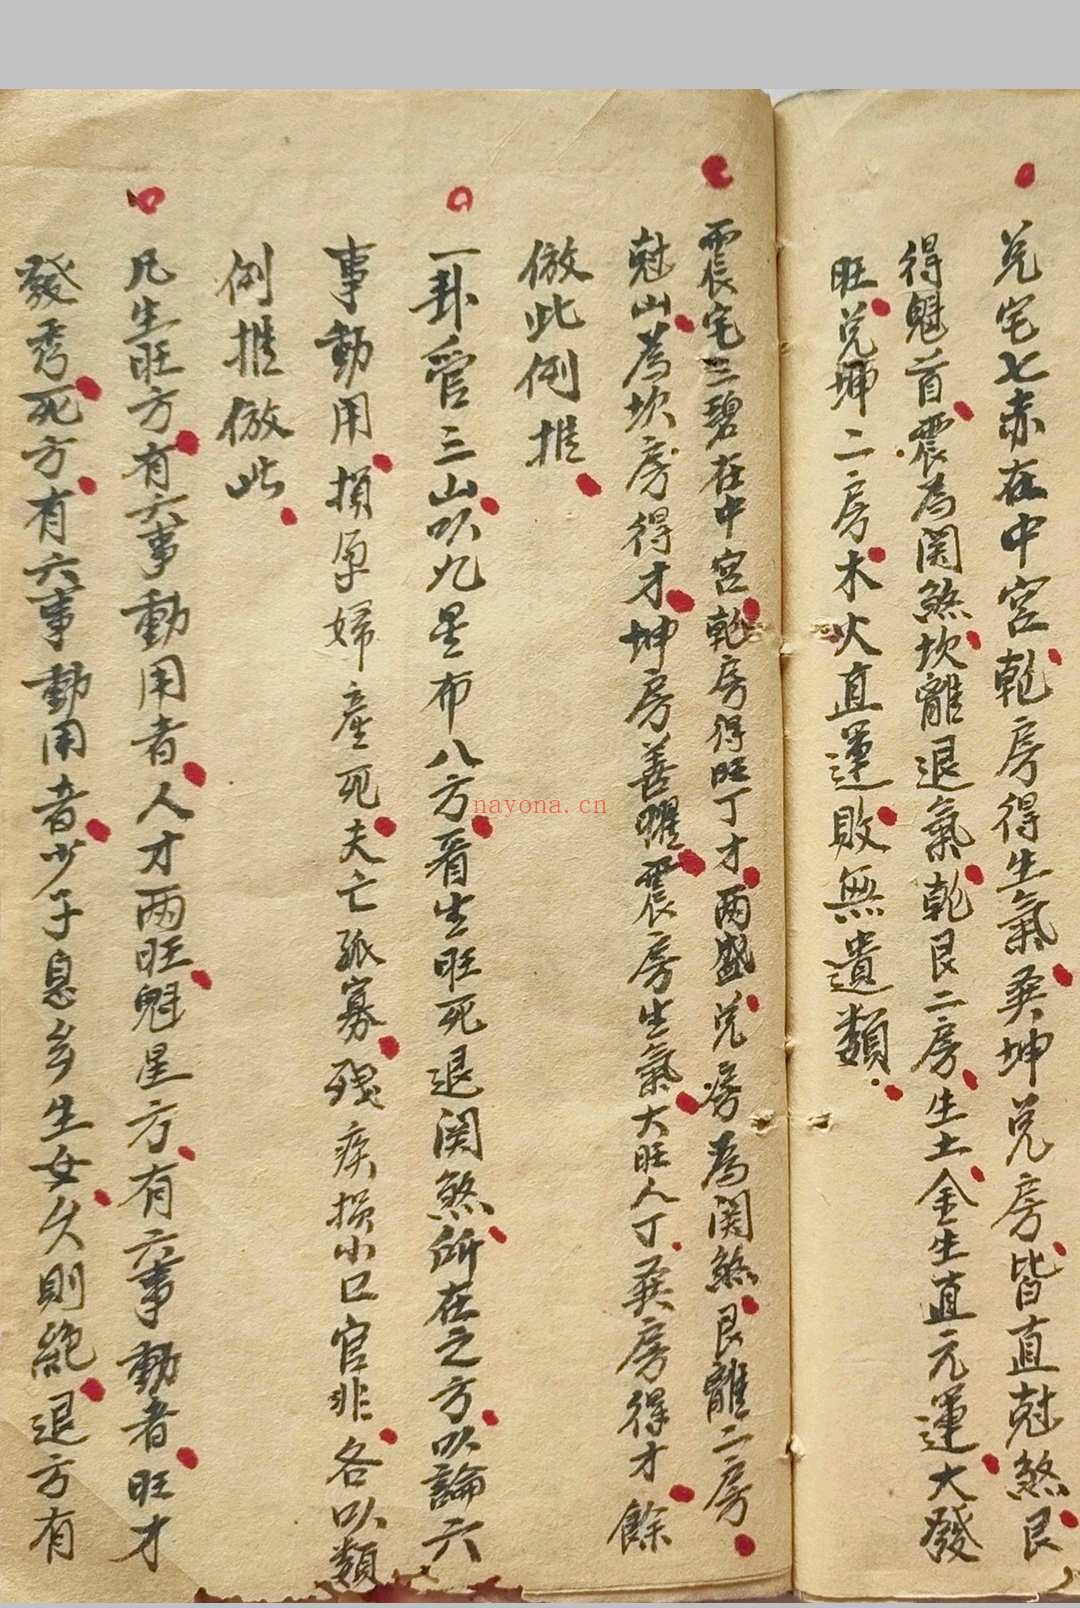 兑宅七赤在中宮乾房得生氣巽坤兑房皆直尅煞艮
得魁首震為関煞坎離退氣乾艮二房生土金生直元運大發
旺兑坤二房木火直運敗無遺類
震宅三碧在中宮乾房得旺丁才兩盛兑房為関煞艮離二房
尅山為坎房得才坤房善曜震房生氣大旺人丁巽房得才餘
倣此例推
一卦管三山以九星布八方看生旺死退関煞所在之方以論六
事動用損孕婦產死夫亡孤寡殘疾損小口官非各以類
例推倣此
凡生旺方有六事動用者人才兩旺魁星方有六事動者旺才
發秀死方有六事動用者少子息多生女久則絶退方有
nayona.cn